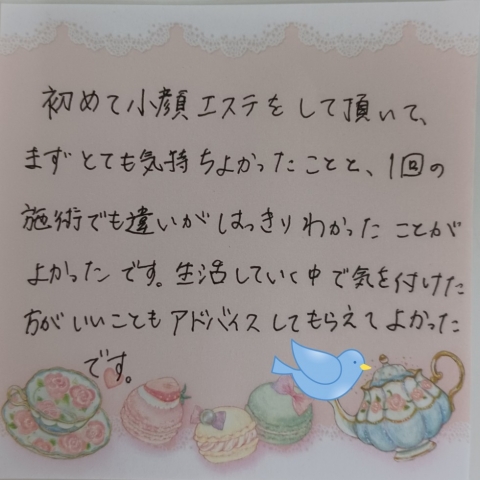 初めて小顔エステをして頂いて、
まずとても気持ちよかったことと、1回の
施術でも違いがはっきりわかったことが
よかったです。生活していく中で気を付けた
方がいいこともアドバイスしてもらえてよかった
です。